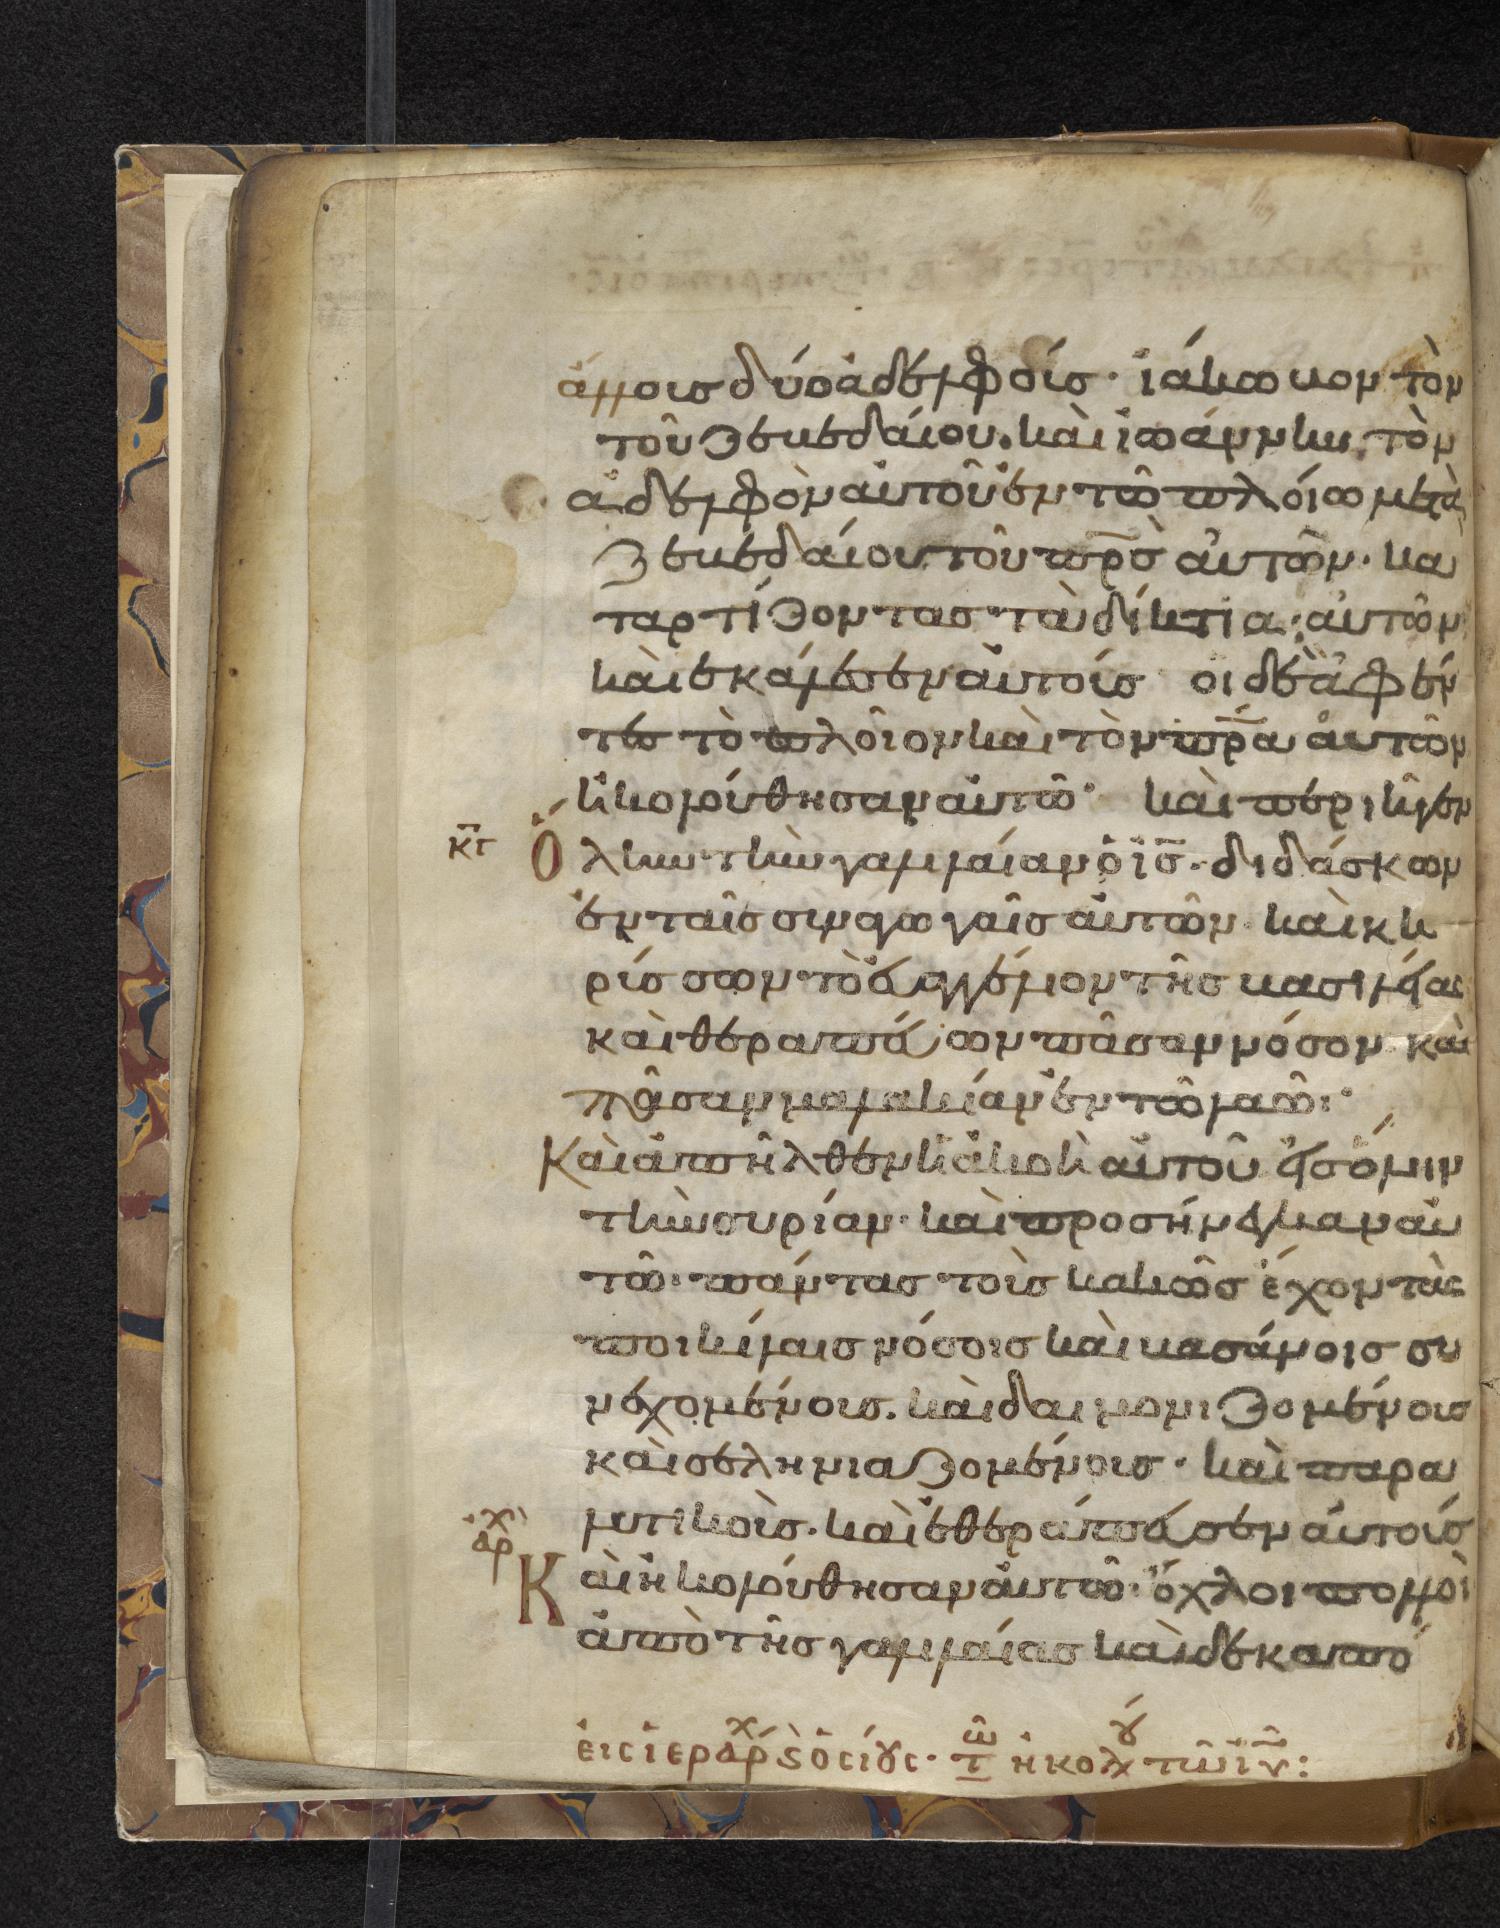 ἄλλοις δύο ἀδελφοίς· ἰάκωβον τὸν
τοῦ ζεβεδάιου. καὶ ἰωάννην τὸν
ἀδελφὸν ἀυτοῦ ἐν τῶ πλόιω μετὰ
ζεβεδάιου τοῦ πρ̅σ̅ αὐτῶν· κα
ταρτίζοντας τὰ δίκτια αὐτῶν
καὶ ἐκάλεσεν ἀυτοίς οι δὲ ἀφέν
τες τὸ πλοῖον καὶ τὸν πρ̅α̅ ἀυτῶν
ἠκολούθησαν ἀυτῶ· καὶ περιῆγεν
κγ Ὅλην τὴν γαλλιλαίαν ὁ ις̅· διδάσκων
ἐν ταῖς συναγωγαῖς ἀυτῶν· καὶ κη
ρίσσων τὸ ἐυαγγέλιον τῆς βασιλείας
καὶ θεραπεύων πᾶσαν νόσον καὶ
πᾶσαν μαλακίαν ἐν τῶ λαῶ:
Καὶ ἀπῆλθεν ἡ ἀκοὴ ἀυτοῦ εἰς ὅλην
τὴν συρίαν· καὶ προσήνεγκαν ἀυ
τῶ· πάντας τοὶς κακῶς έχοντὰς
ποικίλαις νόσοις καὶ βασάνοις συ
νεχομένοις. καὶ δαιμονιζομένοις
καὶ σεληνιαζομένοις· καὶ παρα
λυτικοὶς. καὶ ἐθεράπευσεν ἀυτοίς
αρχ Καὶ ἠκολούθησαν ἀυτῶ· ὄχλοι πολλοὶ
ἀπὸ τῆς γαλλιλαίας καὶ δεκαπό
εἰς ἱεράρχ ς ὁσίους· τῶ ἠκολού τῶ ιυ̅: